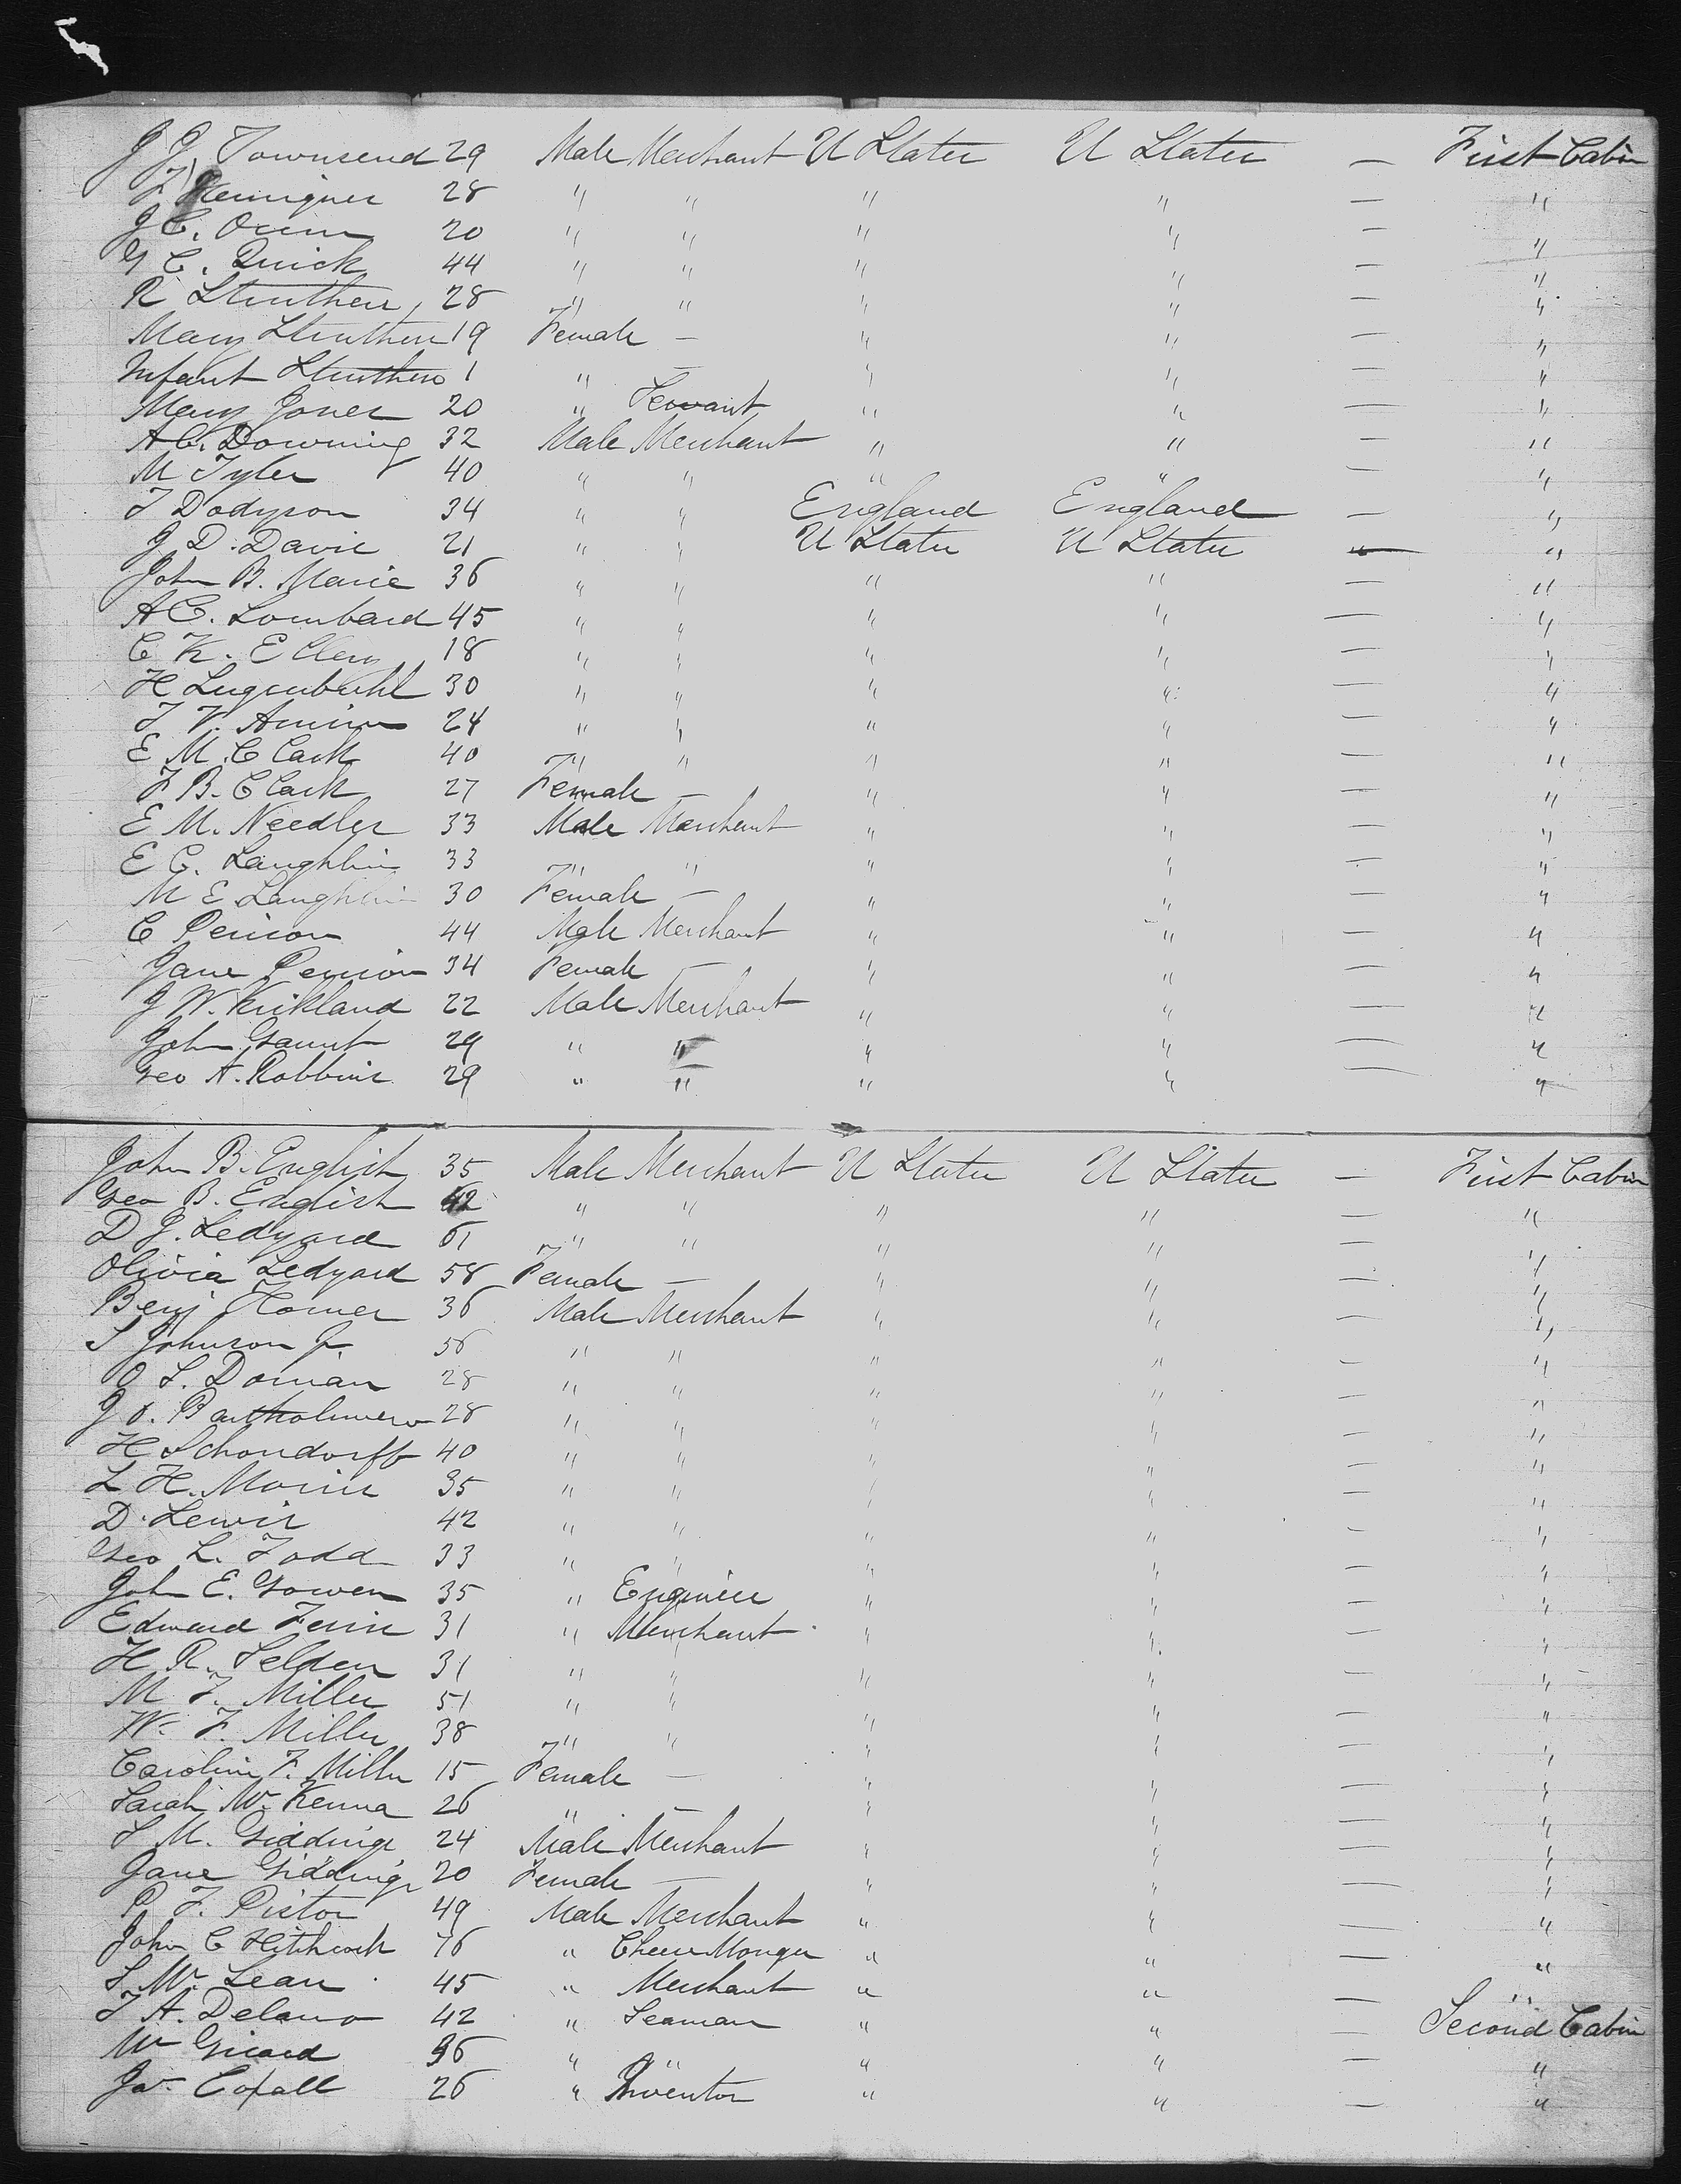 J J Townsend 29 Male Merchant U States U States — First Cabin
J 28 " " " " — "
J C. Orum 20 " " " " — "
G C. Quick 44 " " " " — "
R Struthers 28 " " " " — "
Mary Struthers 19 Female — " " — "
Infant Struthers 1 " — " " — "
Mary Jones 20 " Servant " " — "
A C. Downing 32 Male Merchant " " — "
M Tyler 40 " " " " — "
J Dodgson 34 " " England England — "
J D. Davis 21 " " U States U States — "
John B. Marie 36 " " " " — "
A C. Lombard 45 " " " " — "
C K. Ellery 18 " " " " — "
H Lugenbuhl 30 " " " " — "
J V. 24 " " " " — "
E M. Clark 40 " " " " — "
F B. Clark 27 Female — " " — "
E M. Needles 33 Male Merchant " " — "
E C. Laughlin 33 " " " " — "
M E Laughlin 30 Female — " " — "
C Penison 44 Male Merchant " " — "
Jane Penison 34 Female — " " — "
J W. Kirkland 22 Male Merchant " " — "
John Gaunt 29 " " " " — "
Geo A. Robbins 29 " " " " — "
John B. English 35 Male Merchant U States U States — First Cabin
Geo B. English 42 " " " " — "
D J. Ledyard 61 " " " " — "
Olivia Ledyard 58 Female — " " — "
Benj Homer 36 Male Merchant " " — "
S Johnson Jr. 56 " " " " — "
O S. Doman 28 " " " " — "
J O. Bartholomew 28 " " " " — "
H Schondorff 40 " " " " — "
L H. Morris 35 " " " " — "
D. Lewis 42 " " " " — "
Geo L. Todd 33 " " " " — "
John E. Gowen 35 " Engineer " " — "
Edward Ferris 31 " Merchant " " — "
H R. Selden 31 " " " " — "
M F. Miller 51 " " " " — "
W. F. Miller 38 " " " " — "
Caroline F. Miller 15 Female — " " — "
Sarah McKenna 26 " — " " — "
S M. Giddings 24 Male Merchant " " — "
Jane Giddings 20 Female — " " — "
P. F. Pistor 49 Male Merchant " " — "
John C Hitchcock 46 " Cheese Monger " " — "
S McLean 45 " Merchant " " — "
J A. Delano 42 " Seaman " " — Second Cabin
Wm Girard 36 " " " " — "
Jas Coxall 26 " Inventor " " — "